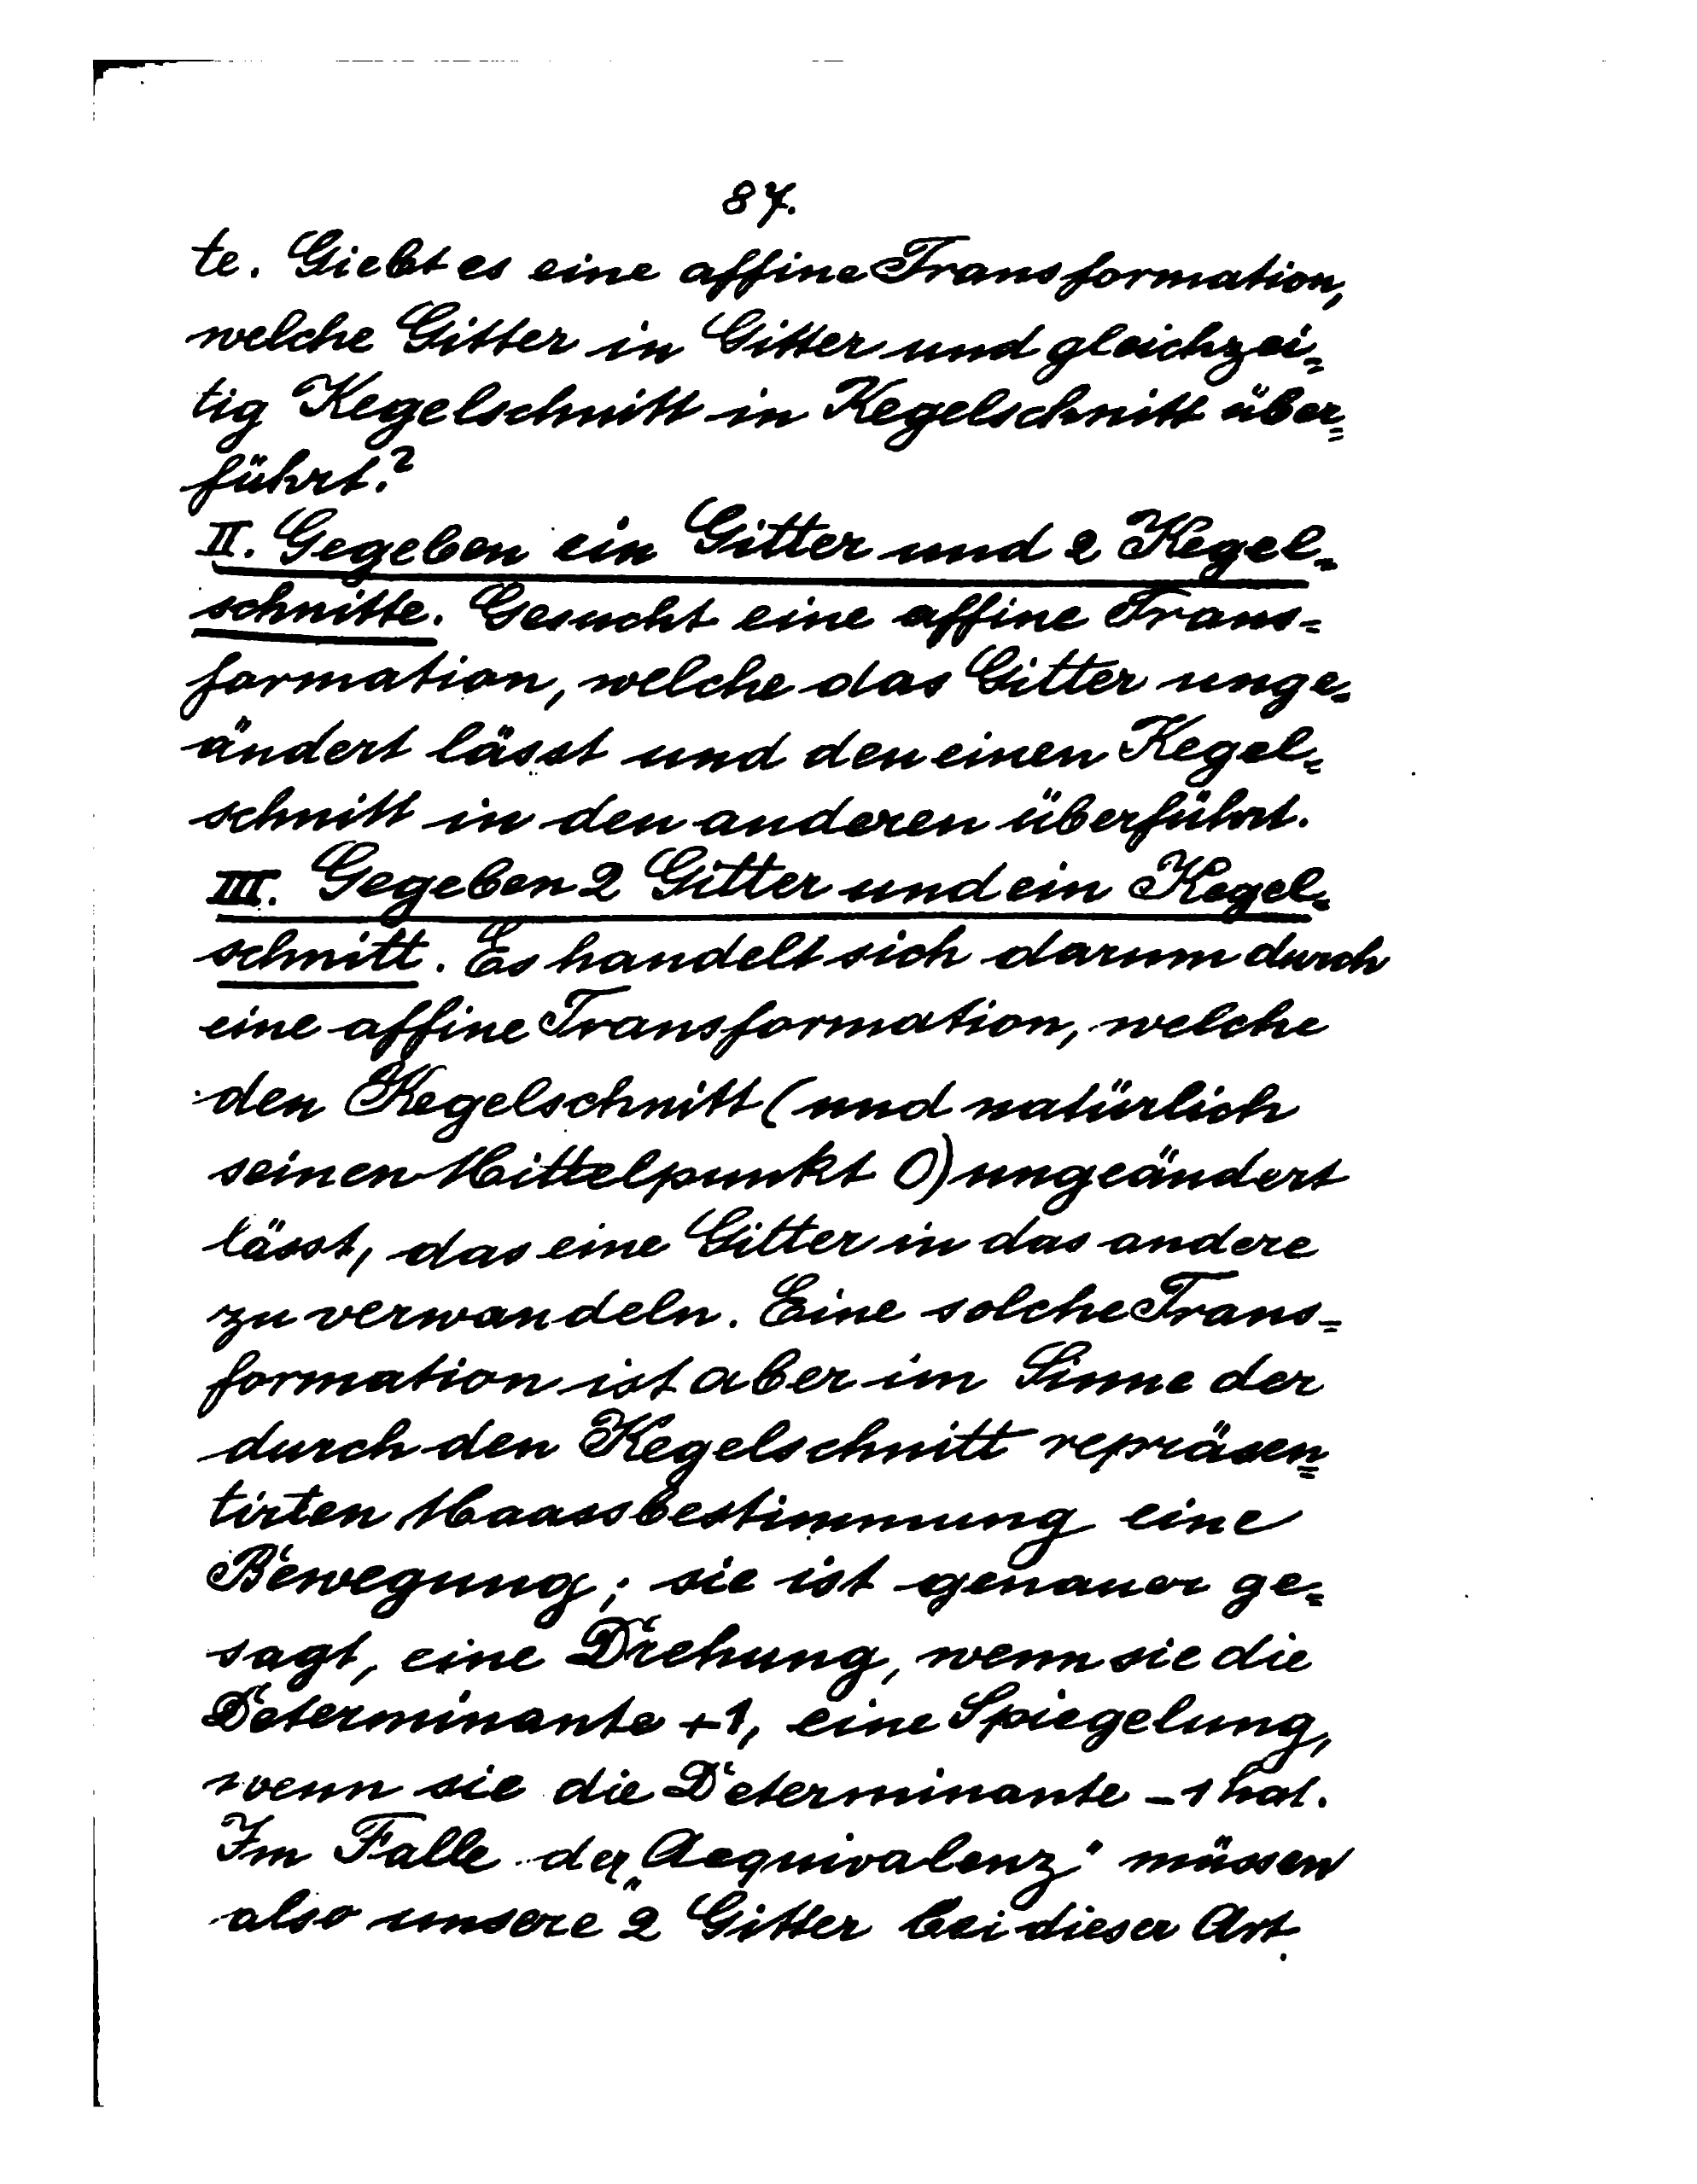 87.
te. Giebt es eine affine Transformation,
welche Gitter in Gitter und gleichzei=
tig Kegelschnitt in Kegelschnitt über=
führt?
II. Gegeben ein Gitter und 2 Kegel=
schnitte. Gesucht eine affine Trans=
formation, welche das Gitter unge=
ändert lässt und den einen Kegel=
schnitt in den anderen überführt.
III. Gegeben 2 Gitter und ein Kegel=
schnitt. Es handelt sich darum durch
eine affine Transformation, welche
den Kegelschnitt (und natürlich
seinen Mittelpunkt O) ungeändert
lässt, das eine Gitter in das andere
zu verwandeln. Eine solche Trans=
formation ist aber im Sinne der
durch den Kegelschnitt repräsen=
tirten Maassbestimmung eine
Bewegung; sie ist genauer ge=
sagt, eine Drehung, wenn sie die
Determinante +1, eine Spiegelung,
wenn sie die Determinante -1 hat.
Im Falle der „Aequivalenz" müssen
also unsere 2 Gitter bei dieser Art